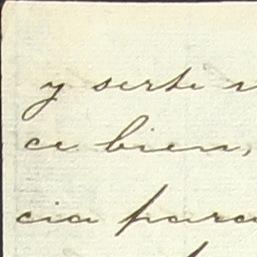 y serte
ce bien,
cia para